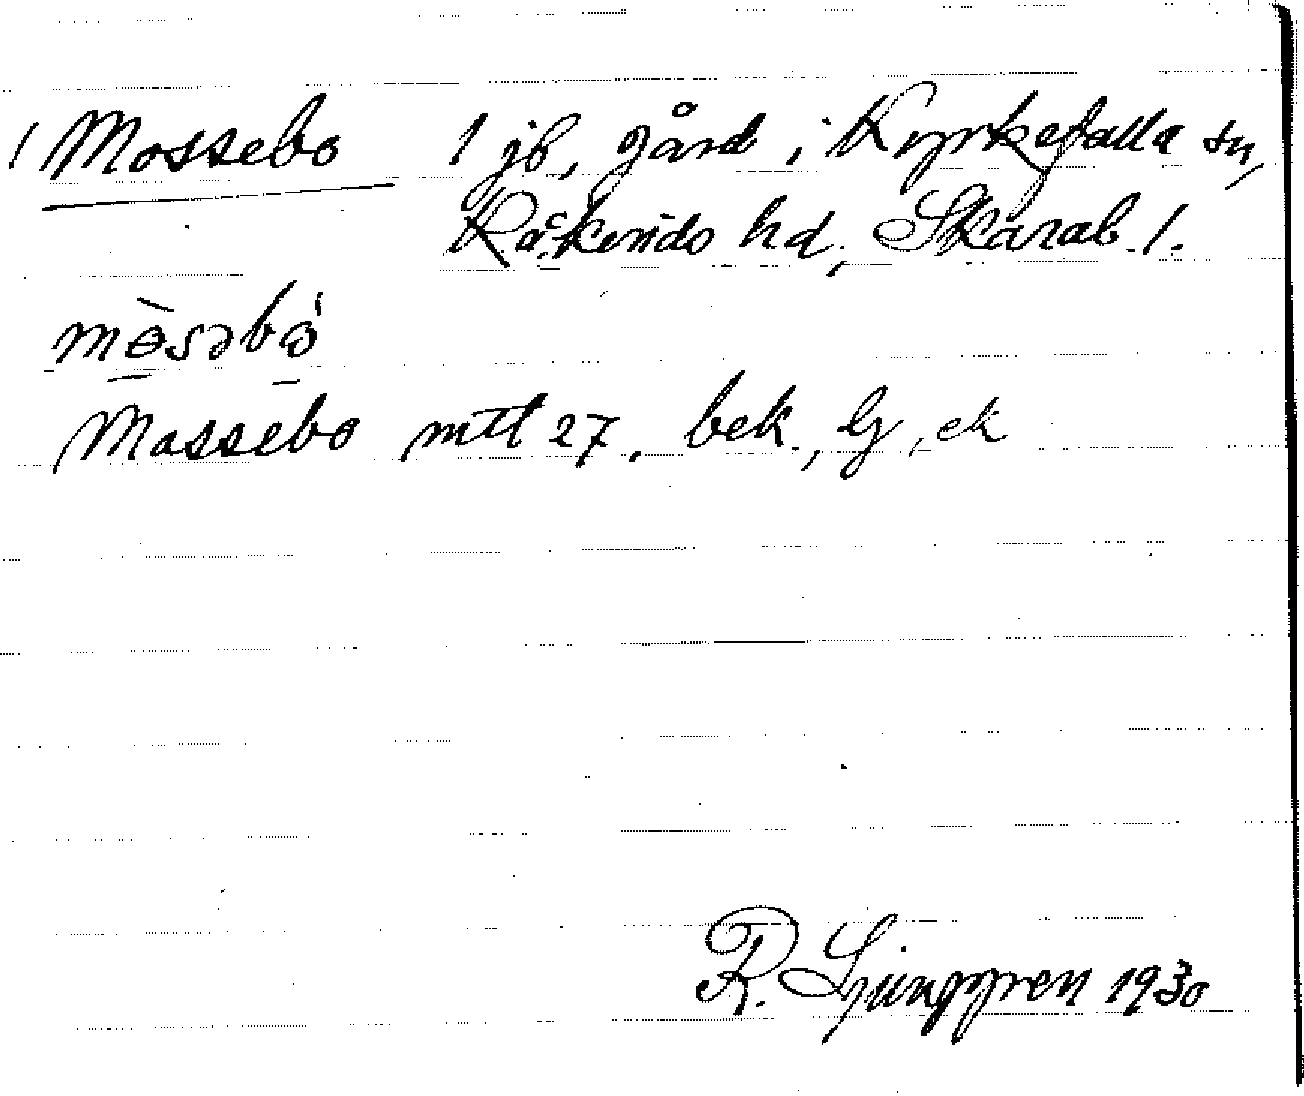 ! Mossebo 1 jb, gård i Kyrkefalla sn,
Kåkinds hd, Skarab. l.
Mossebo mtl 27, bek., Lj, ek
R. Ljunggren 1930